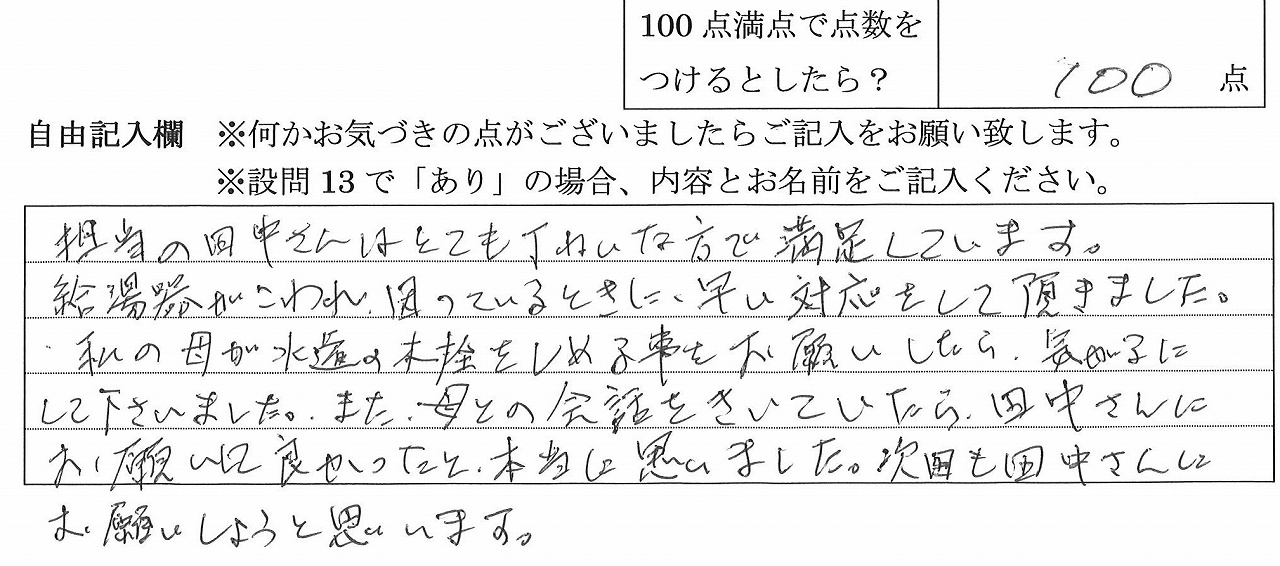 100点満点で点数を
つけるとしたら？
100 点
自由記入欄 ※何かお気づきの点がございましたらご記入をお願い致します。
※設問13で「あり」の場合、内容とお名前をご記入ください。
担当の田中さんはとても丁ねいな方で満足しています。
給湯器がこわれ、困っているときに、早い対応をして頂きました。
私の母が水道の木栓をしめる事をお願いしたら、気がるに
して下さいました。また、母との会話をきいていたら、田中さんに
お願いして良かったと、本当に思いました。次回も田中さんに
お願いしようと思います。